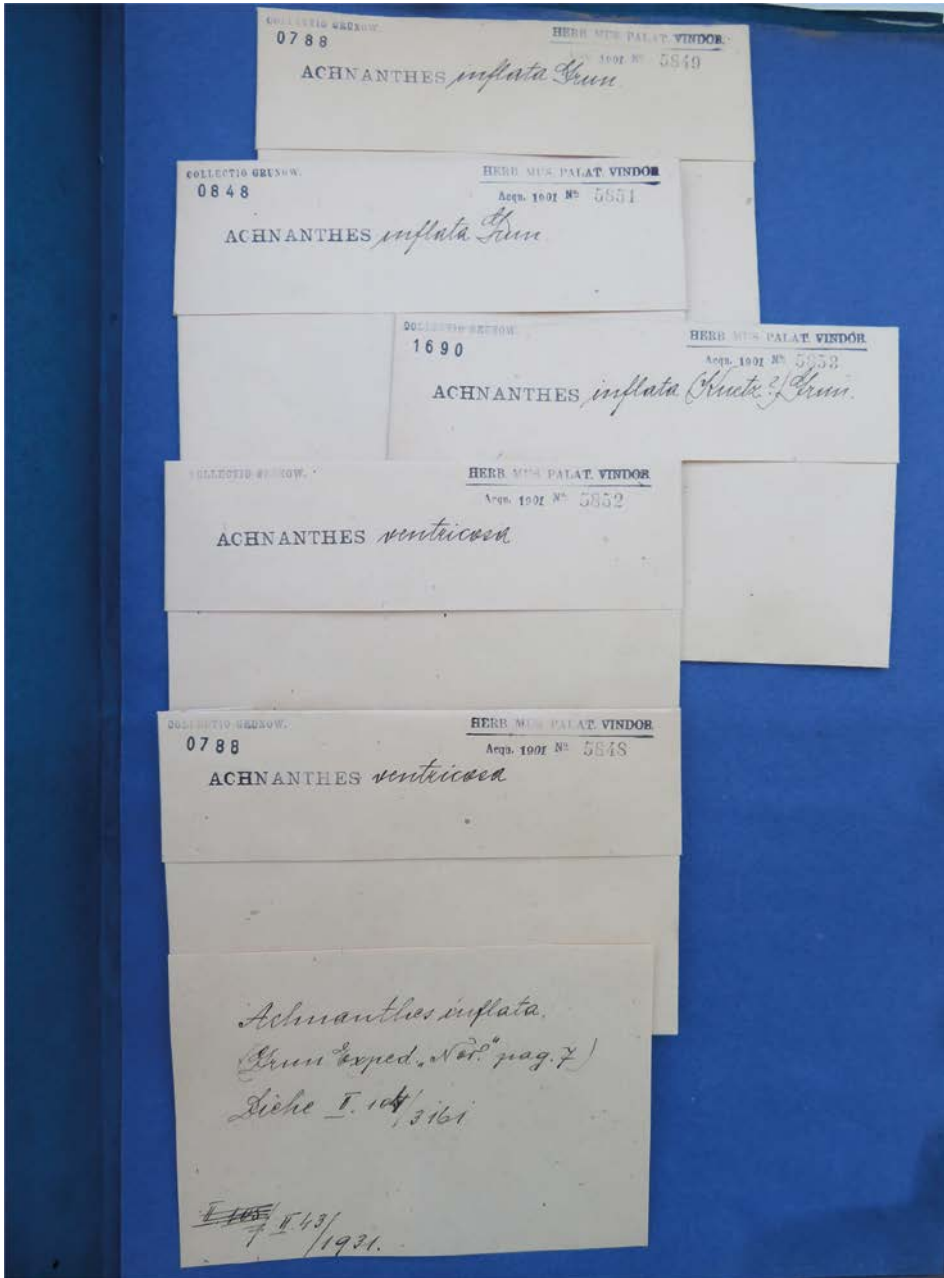 COLLECTIO GRUNOW.
0788
HERB. MUS. PALAT. VINDOB.
Acqu. 1901 No. 5849
ACHNANTHES inflata Grun.
COLLECTIO GRUNOW.
0848
HERB. MUS. PALAT. VINDOB.
Acqu. 1901 No. 5851
ACHNANTHES inflata Grun.
COLLECTIO GRUNOW.
1690
HERB. MUS. PALAT. VINDOB.
Acqu. 1901 No. 5853
ACHNANTHES inflata (Kuetz?) Grun.
COLLECTIO GRUNOW.
HERB. MUS. PALAT. VINDOB.
Acqu. 1901 No. 5852
ACHNANTHES ventricosa
COLLECTIO GRUNOW.
0788
HERB. MUS. PALAT. VINDOB.
Acqu. 1901 No. 5848
ACHNANTHES ventricosa
Achnanthes inflata.
(Grun Exped. „Nov." pag. 7)
Siehe II.
II.43/1931.